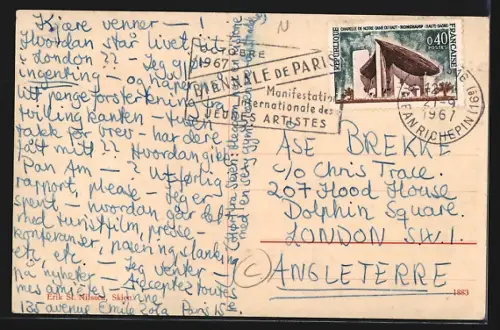 Kjære venner — !
Hvordan står livet på i
London ?? — Jeg gjør
ingenting — og håper på
litt pengeforsterkning fra
tvillingkanten — Tusen
takk for brev — har dere
fått mitt ?? Hvordan gikk
Pan Am — ? Utførlig
rapport, please — Jeg er
spent — hvordan går det
med turistfilm, presse-
konferanser, poseringslanking
etc, etc. — Jeg venter —
på nyheter — Acceptez toutes
mes amitiés — Anne
135 avenue Emile Zola Paris 15
Erik St. Nilssen, Skien
Skien:
med en sexy gymnastikk
OCTOBRE
1967
BIENNALE DE PARIS
Manifestation
internationale des
JEUNES ARTISTES
REPUBLIQUE FRANÇAISE
CHAPELLE DE NOTRE-DAME DU HAUT - RONCHAMP (HAUTE-SAÔNE)
0,40
POSTES
27-9
1967
JEAN RICHEPIN (16e)
ÅSE BREKKE
c/o Chris Trace.
207 Hood House
Dolphin Square.
LONDON S.W.1.
ANGLETERRE
1883